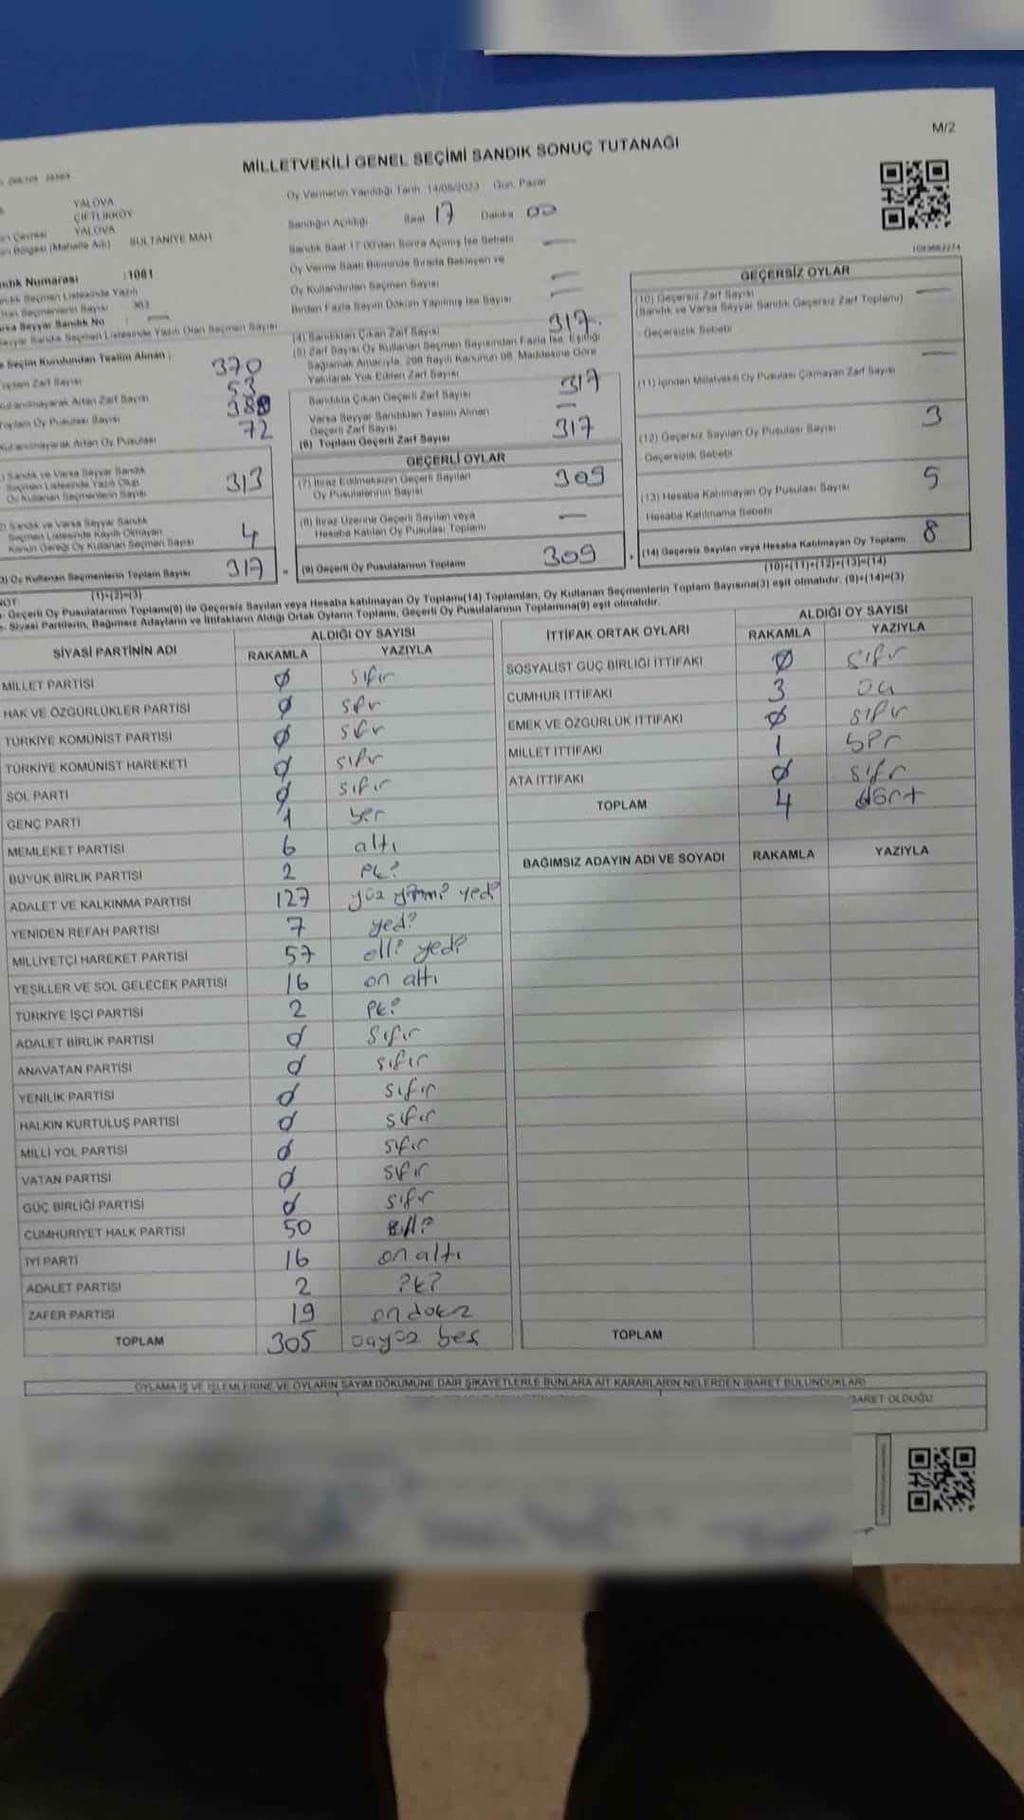 M/2
MİLLETVEKİLİ GENEL SEÇİMİ SANDIK SONUÇ TUTANAĞI
YALOVA
ÇİFTLİKKÖY
YALOVA
(Mahalle Adı) SULTANİYE MAH
Numarası :1081
Sandık Seçmen Listesinde Yazılı
Olan Seçmenlerin Sayısı 363
Varsa Seyyar Sandık No —
Seyyar Sandık Seçmen Listesinde Yazılı Olan Seçmen Sayısı
Seçim Kurulundan Teslim Alınan :
Toplam Zarf Sayısı 370
Kullanılmayarak Artan Zarf Sayısı 53
Toplam Oy Pusulası Sayısı
Kullanılmayarak Artan Oy Pusulası 72
Sandık ve Varsa Seyyar Sandık
Seçmen Listesinde Yazılı Olup
Oy Kullanan Seçmenlerin Sayısı 313
Sandık ve Varsa Seyyar Sandık
Seçmen Listesinde Kayıtlı Olmayan
Kanun Gereği Oy Kullanan Seçmen Sayısı 4
Oy Kullanan Seçmenlerin Toplam Sayısı 317
(1)+(2)=(3)
Oy Vermenin Yapıldığı Tarih 14/05/2023 Gün: Pazar
Sandığın Açıldığı Saat 17 Dakika 00
Sandık Saat 17:00'den Sonra Açılmış İse Sebebi —
Oy Verme Saati Bitiminde Sırada Bekleyen ve
Oy Kullandırılan Seçmen Sayısı —
Birden Fazla Sayım Döküm Yapılmış İse Sayısı —
(4) Sandıktan Çıkan Zarf Sayısı 317
(5) Zarf Sayısı Oy Kullanan Seçmen Sayısından Fazla İse, Eşitliği
Sağlamak Amacıyla, 298 Sayılı Kanunun 98. Maddesine Göre
Yakılarak Yok Edilen Zarf Sayısı
Sandıkta Çıkan Geçerli Zarf Sayısı 317
Varsa Seyyar Sandıktan Teslim Alınan
Geçerli Zarf Sayısı —
(6) Toplam Geçerli Zarf Sayısı 317
GEÇERLİ OYLAR
(7) İtiraz Edilmeksizin Geçerli Sayılan
Oy Pusulalarının Sayısı 309
(8) İtiraz Üzerine Geçerli Sayılan veya
Hesaba Katılan Oy Pusulası Toplamı —
(9) Geçerli Oy Pusulalarının Toplamı 309
GEÇERSİZ OYLAR
(10) Geçersiz Zarf Sayısı
(Sandık ve Varsa Seyyar Sandık Geçersiz Zarf Toplamı) —
Geçersizlik Sebebi
(11) İçinden Milletvekili Oy Pusulası Çıkmayan Zarf Sayısı —
(12) Geçersiz Sayılan Oy Pusulası Sayısı 3
Geçersizlik Sebebi
(13) Hesaba Katılmayan Oy Pusulası Sayısı 5
Hesaba Katılmama Sebebi
(14) Geçersiz Sayılan veya Hesaba Katılmayan Oy Toplamı 8
(10)+(11)+(12)+(13)=(14)
NOT:
Geçerli Oy Pusulalarının Toplamı(9) ile Geçersiz Sayılan veya Hesaba katılmayan Oy Toplamı(14) Toplamları, Oy Kullanan Seçmenlerin Toplam Sayısına(3) eşit olmalıdır. (9)+(14)=(3)
Siyasi Partilerin, Bağımsız Adayların ve İttifakların Aldığı Ortak Oyların Toplamı, Geçerli Oy Pusulalarının Toplamına(9) eşit olmalıdır.
SİYASİ PARTİNİN ADI ALDIĞI OY SAYISI
RAKAMLA YAZIYLA
MİLLET PARTİSİ 0 sıfır
HAK VE ÖZGÜRLÜKLER PARTİSİ 0 sıfır
TÜRKİYE KOMÜNİST PARTİSİ 0 sıfır
TÜRKİYE KOMÜNİST HAREKETİ 0 sıfır
SOL PARTİ 0 sıfır
GENÇ PARTİ 1 bir
MEMLEKET PARTİSİ 6 altı
BÜYÜK BİRLİK PARTİSİ 2 iki
ADALET VE KALKINMA PARTİSİ 127 yüz yirmi yedi
YENİDEN REFAH PARTİSİ 7 yedi
MİLLİYETÇİ HAREKET PARTİSİ 57 elli yedi
YEŞİLLER VE SOL GELECEK PARTİSİ 16 on altı
TÜRKİYE İŞÇİ PARTİSİ 2 iki
ADALET BİRLİK PARTİSİ 0 sıfır
ANAVATAN PARTİSİ 0 sıfır
YENİLİK PARTİSİ 0 sıfır
HALKIN KURTULUŞ PARTİSİ 0 sıfır
MİLLİ YOL PARTİSİ 0 sıfır
VATAN PARTİSİ 0 sıfır
GÜÇ BİRLİĞİ PARTİSİ 0 sıfır
CUMHURİYET HALK PARTİSİ 50 elli
İYİ PARTİ 16 on altı
ADALET PARTİSİ 2 iki
ZAFER PARTİSİ 19 on dokuz
TOPLAM 305 üçyüz beş
İTTİFAK ORTAK OYLARI ALDIĞI OY SAYISI
RAKAMLA YAZIYLA
SOSYALİST GÜÇ BİRLİĞİ İTTİFAKI 0 sıfır
CUMHUR İTTİFAKI 3 üç
EMEK VE ÖZGÜRLÜK İTTİFAKI 0 sıfır
MİLLET İTTİFAKI 1 bir
ATA İTTİFAKI 0 sıfır
TOPLAM 4 dört
BAĞIMSIZ ADAYIN ADI VE SOYADI RAKAMLA YAZIYLA
TOPLAM
OYLAMA İŞ VE İŞLEMLERİNE VE OYLARIN SAYIM DÖKÜMÜNE DAİR ŞİKAYETLERLE BUNLARA AİT KARARLARIN NELERDEN İBARET BULUNDUKLARI
İBARET OLDUĞU